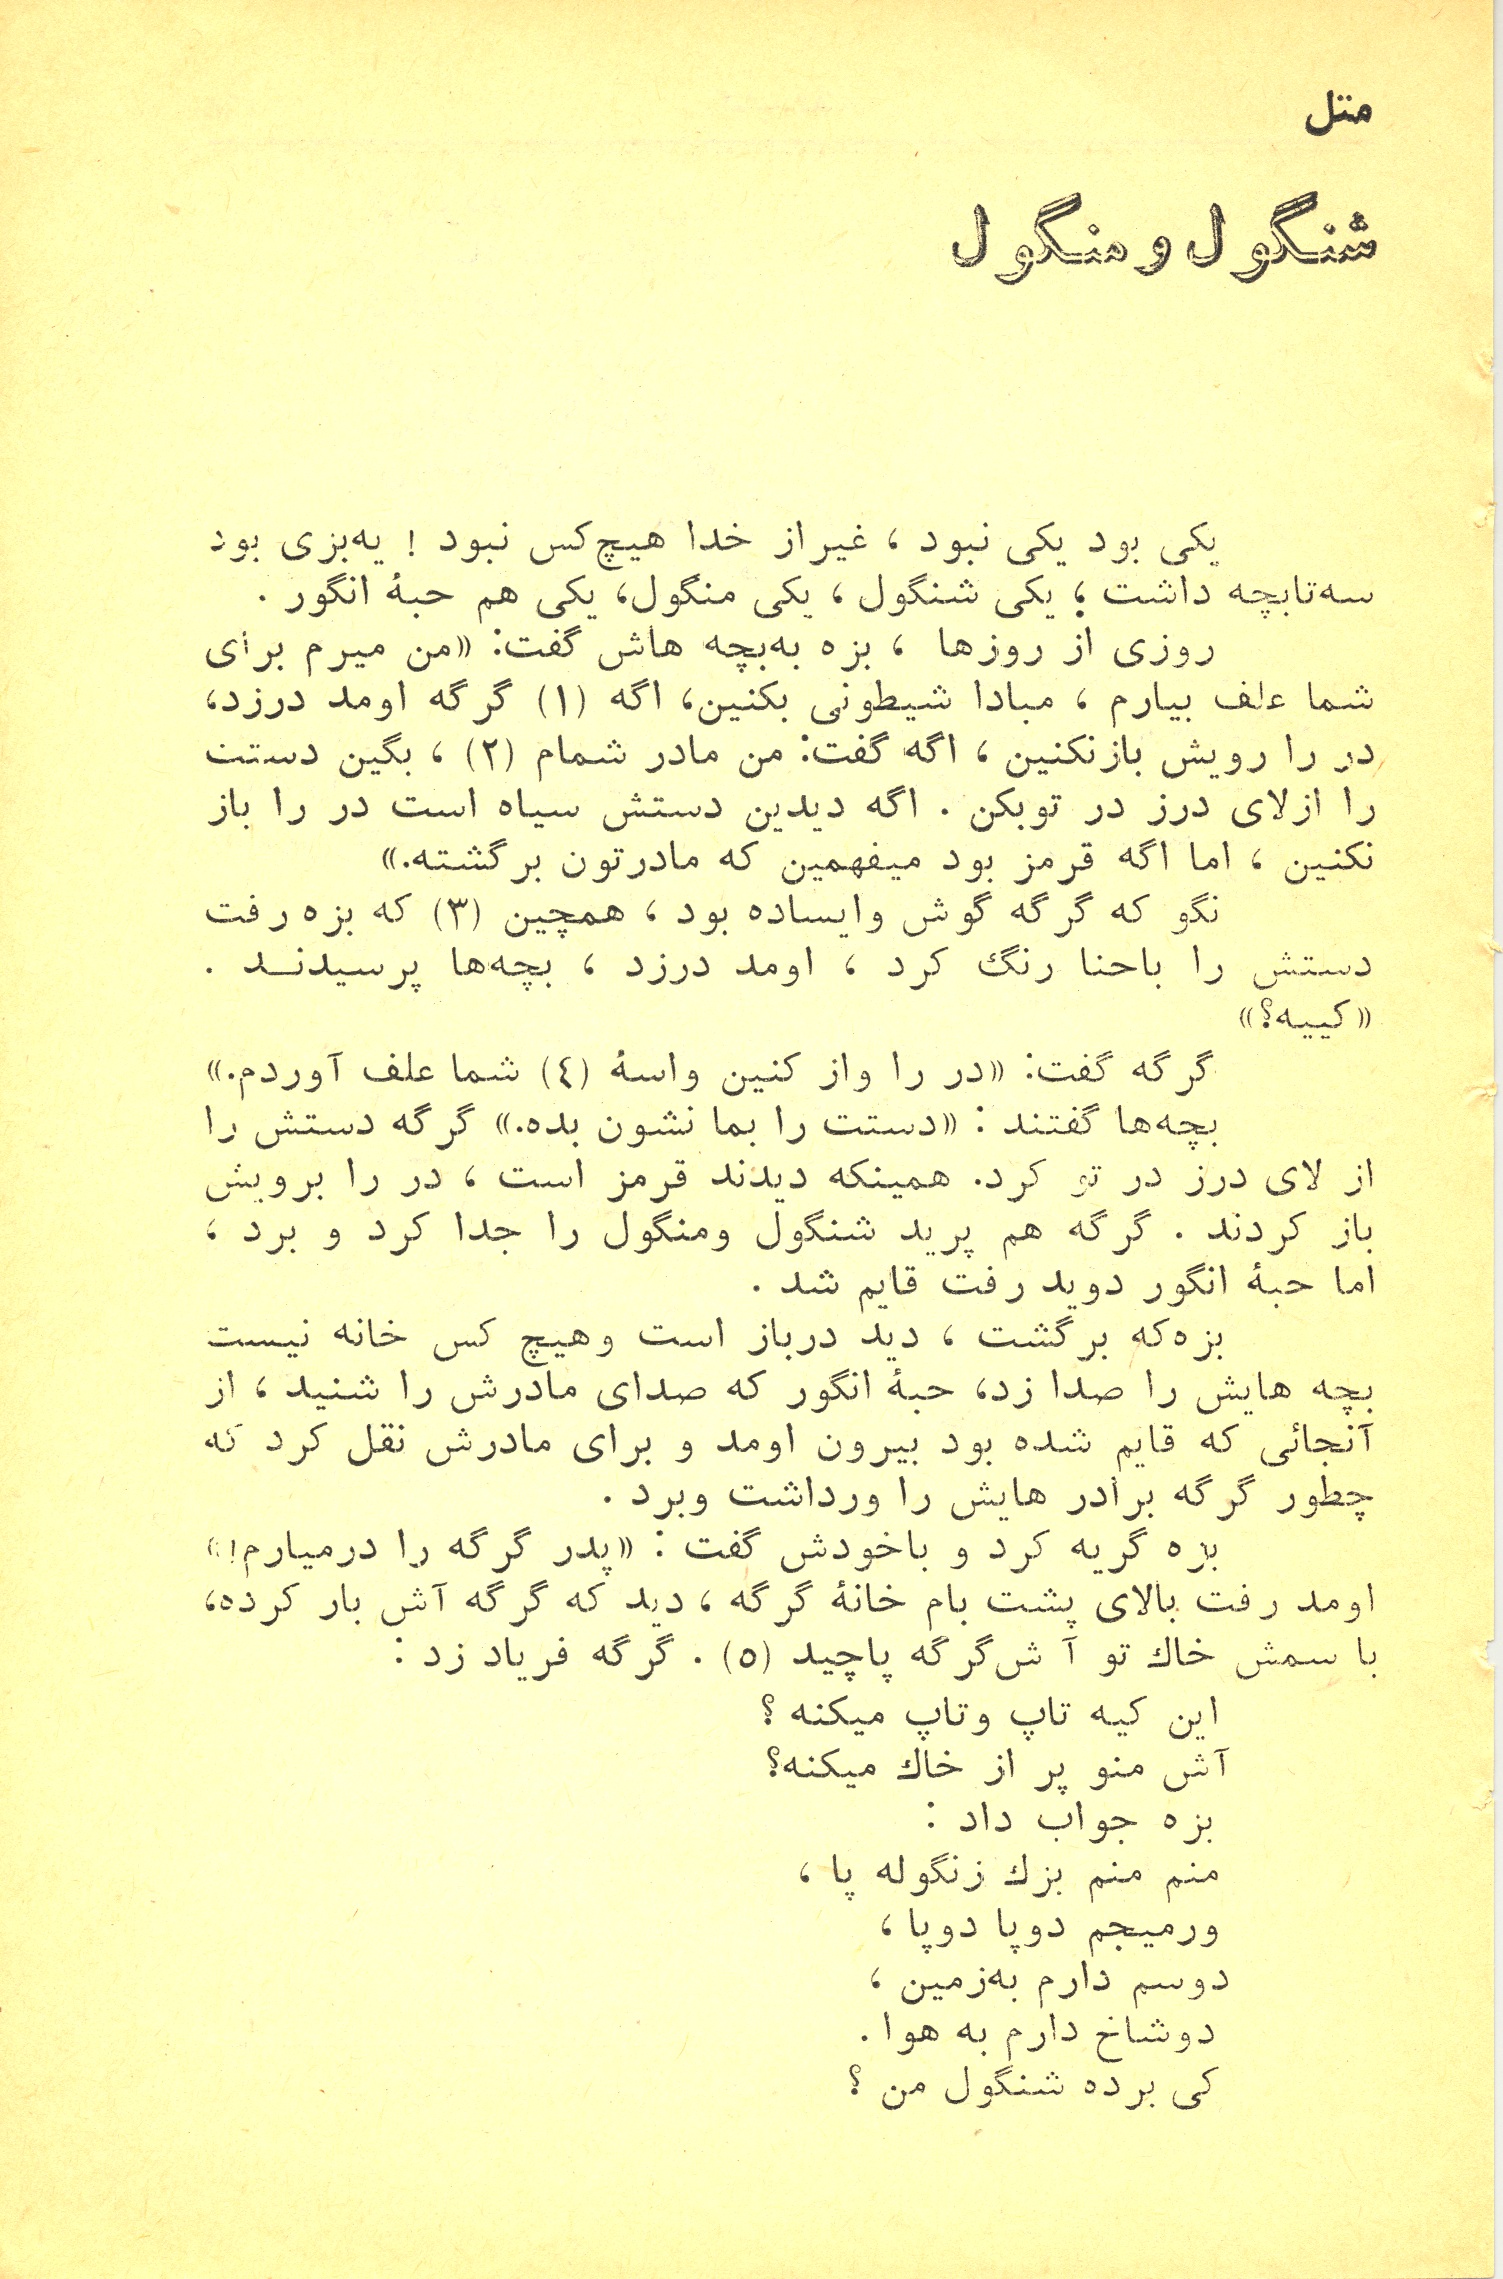 متل
شنگول و منگول
یکی بود یکی نبود ، غیر از خدا هیچ‌کس نبود ! یه‌بزی بود
سه‌تابچه داشت ؛ یکی شنگول ، یکی منگول، یکی هم حبهٔ انگور .
روزی از روزها ، بزه به‌بچه هاش گفت: «من میرم برای
شما علف بیارم ، مبادا شیطونی بکنین، اگه (۱) گرگه اومد درزد،
در را رویش بازنکنین ، اگه گفت: من مادر شمام (۲) ، بگین دستت
را ازلای درز در توبکن . اگه دیدین دستش سیاه است در را باز
نکنین ، اما اگه قرمز بود میفهمین که مادرتون برگشته.»
نگو که گرگه گوش وایساده بود ، همچین (۳) که بزه رفت
دستش را باحنا رنگ کرد ، اومد درزد ، بچه‌ها پرسیدند .
«کییه؟»
گرگه گفت: «در را واز کنین واسهٔ (٤) شما علف آوردم.»
بچه‌ها گفتند : «دستت را بما نشون بده.» گرگه دستش را
از لای درز در تو کرد. همینکه دیدند قرمز است ، در را برویش
باز کردند . گرگه هم پرید شنگول ومنگول را جدا کرد و برد ،
اما حبهٔ انگور دوید رفت قایم شد .
بزه‌که برگشت ، دید درباز است وهیچ کس خانه نیست
بچه هایش را صدا زد، حبهٔ انگور که صدای مادرش را شنید ، از
آنجائی که قایم شده بود بیرون اومد و برای مادرش نقل کرد که
چطور گرگه برادر هایش را ورداشت وبرد .
بزه گریه کرد و باخودش گفت : «پدر گرگه را درمیارم!»
اومد رفت بالای پشت بام خانهٔ گرگه ، دید که گرگه آش بار کرده،
با سمش خاك تو آش‌گرگه پاچید (۵) . گرگه فریاد زد :
این کیه تاپ وتاپ میکنه ؟
آش منو پر از خاك میکنه؟
بزه جواب داد :
منم منم بزك زنگوله پا ،
ورمیجم دوپا دوپا ،
دوسم دارم به‌زمین ،
دوشاخ دارم به هوا .
کی برده شنگول من ؟